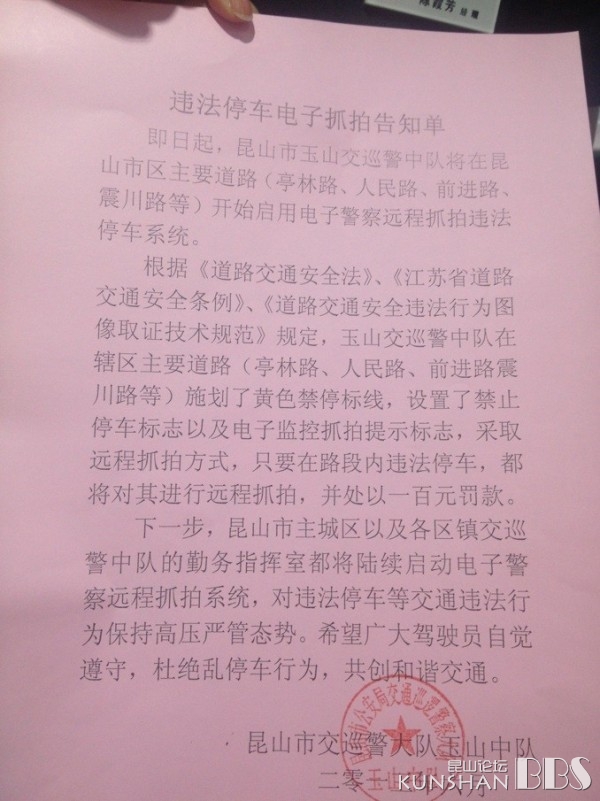 陈霞芳 经理
违法停车电子抓拍告知单
即日起，昆山市玉山交巡警中队将在昆
山市区主要道路（亭林路、人民路、前进路、
震川路等）开始启用电子警察远程抓拍违法
停车系统。
根据《道路交通安全法》、《江苏省道路
交通安全条例》、《道路交通安全违法行为图
像取证技术规范》规定，玉山交巡警中队在
辖区主要道路（亭林路、人民路、前进路震
川路等）施划了黄色禁停标线，设置了禁止
停车标志以及电子监控抓拍提示标志，采取
远程抓拍方式，只要在路段内违法停车，都
将对其进行远程抓拍，并处以一百元罚款。
下一步，昆山市主城区以及各区镇交巡
警中队的勤务指挥室都将陆续启动电子警
察远程抓拍系统，对违法停车等交通违法行
为保持高压严管态势。希望广大驾驶员自觉
遵守，杜绝乱停车行为，共创和谐交通。
昆山市交巡警大队玉山中队
二零一
玉山中队
昆山论坛
KUNSHAN BBS